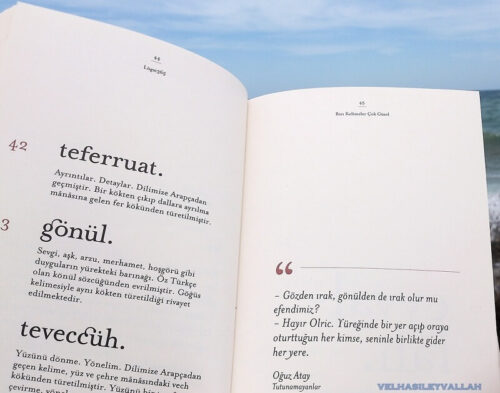 44
Lûgat365
42
teferruat.
Ayrıntılar. Detaylar. Dilimize Arapçadan
geçmiştir. Bir kökten çıkıp dallara ayrılma
mânâsına gelen fer kökünden türetilmiştir.
3
gönül.
Sevgi, aşk, arzu, merhamet, hoşgörü gibi
duyguların yürekteki barınağı. Öz Türkçe
olan könül sözcüğünden evrilmiştir. Göğüs
kelimesiyle aynı kökten türetildiği rivayet
edilmektedir.
teveccüh.
Yüzünü dönme. Yönelim. Dilimize Arapçadan
geçen kelime, yüz ve çehre mânâsındaki vech
kökünden türetilmiştir. Yüzünü bir
çevirme, yönelme
45
Bazı Kelimeler Çok Güzel
“
– Gözden ırak, gönülden de ırak olur mu
efendimiz?
– Hayır Olric. Yüreğinde bir yer açıp oraya
oturttuğun her kimse, seninle birlikte gider
her yere.
Oğuz Atay
Tutunamayanlar
VELHASILEYVALLAH